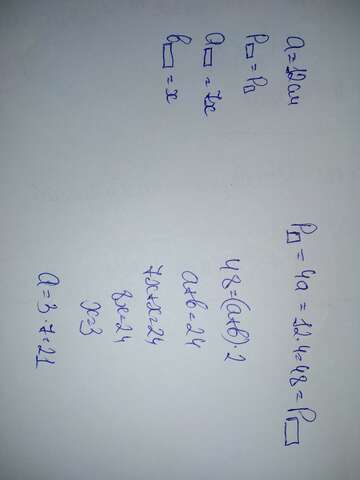 a=12см
P▭=P□
a▭=7x
b▭=x
P□=4a=12·4=48=P▭
48=(a+b)·2
a+b=24
7x+x=24
8x=24
x=3
a=3·7=21